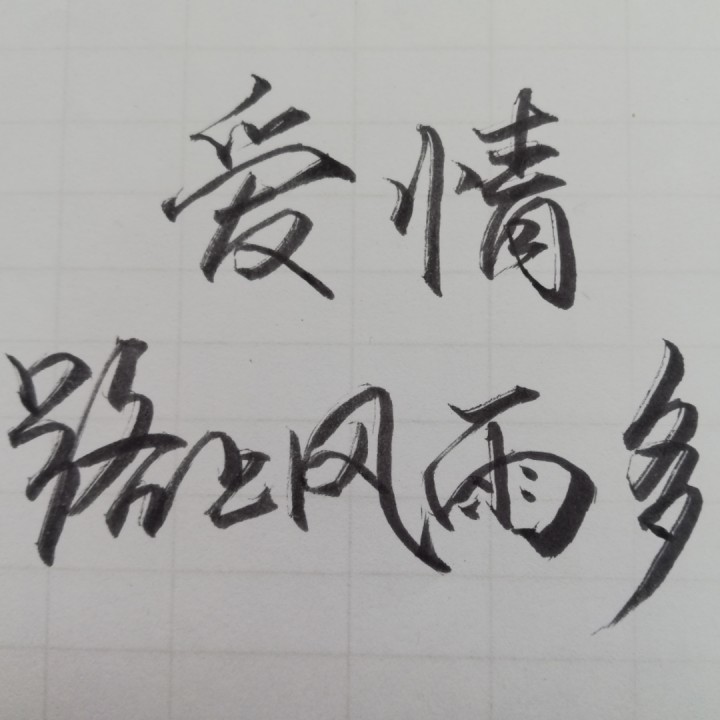 爱情
路上风雨多